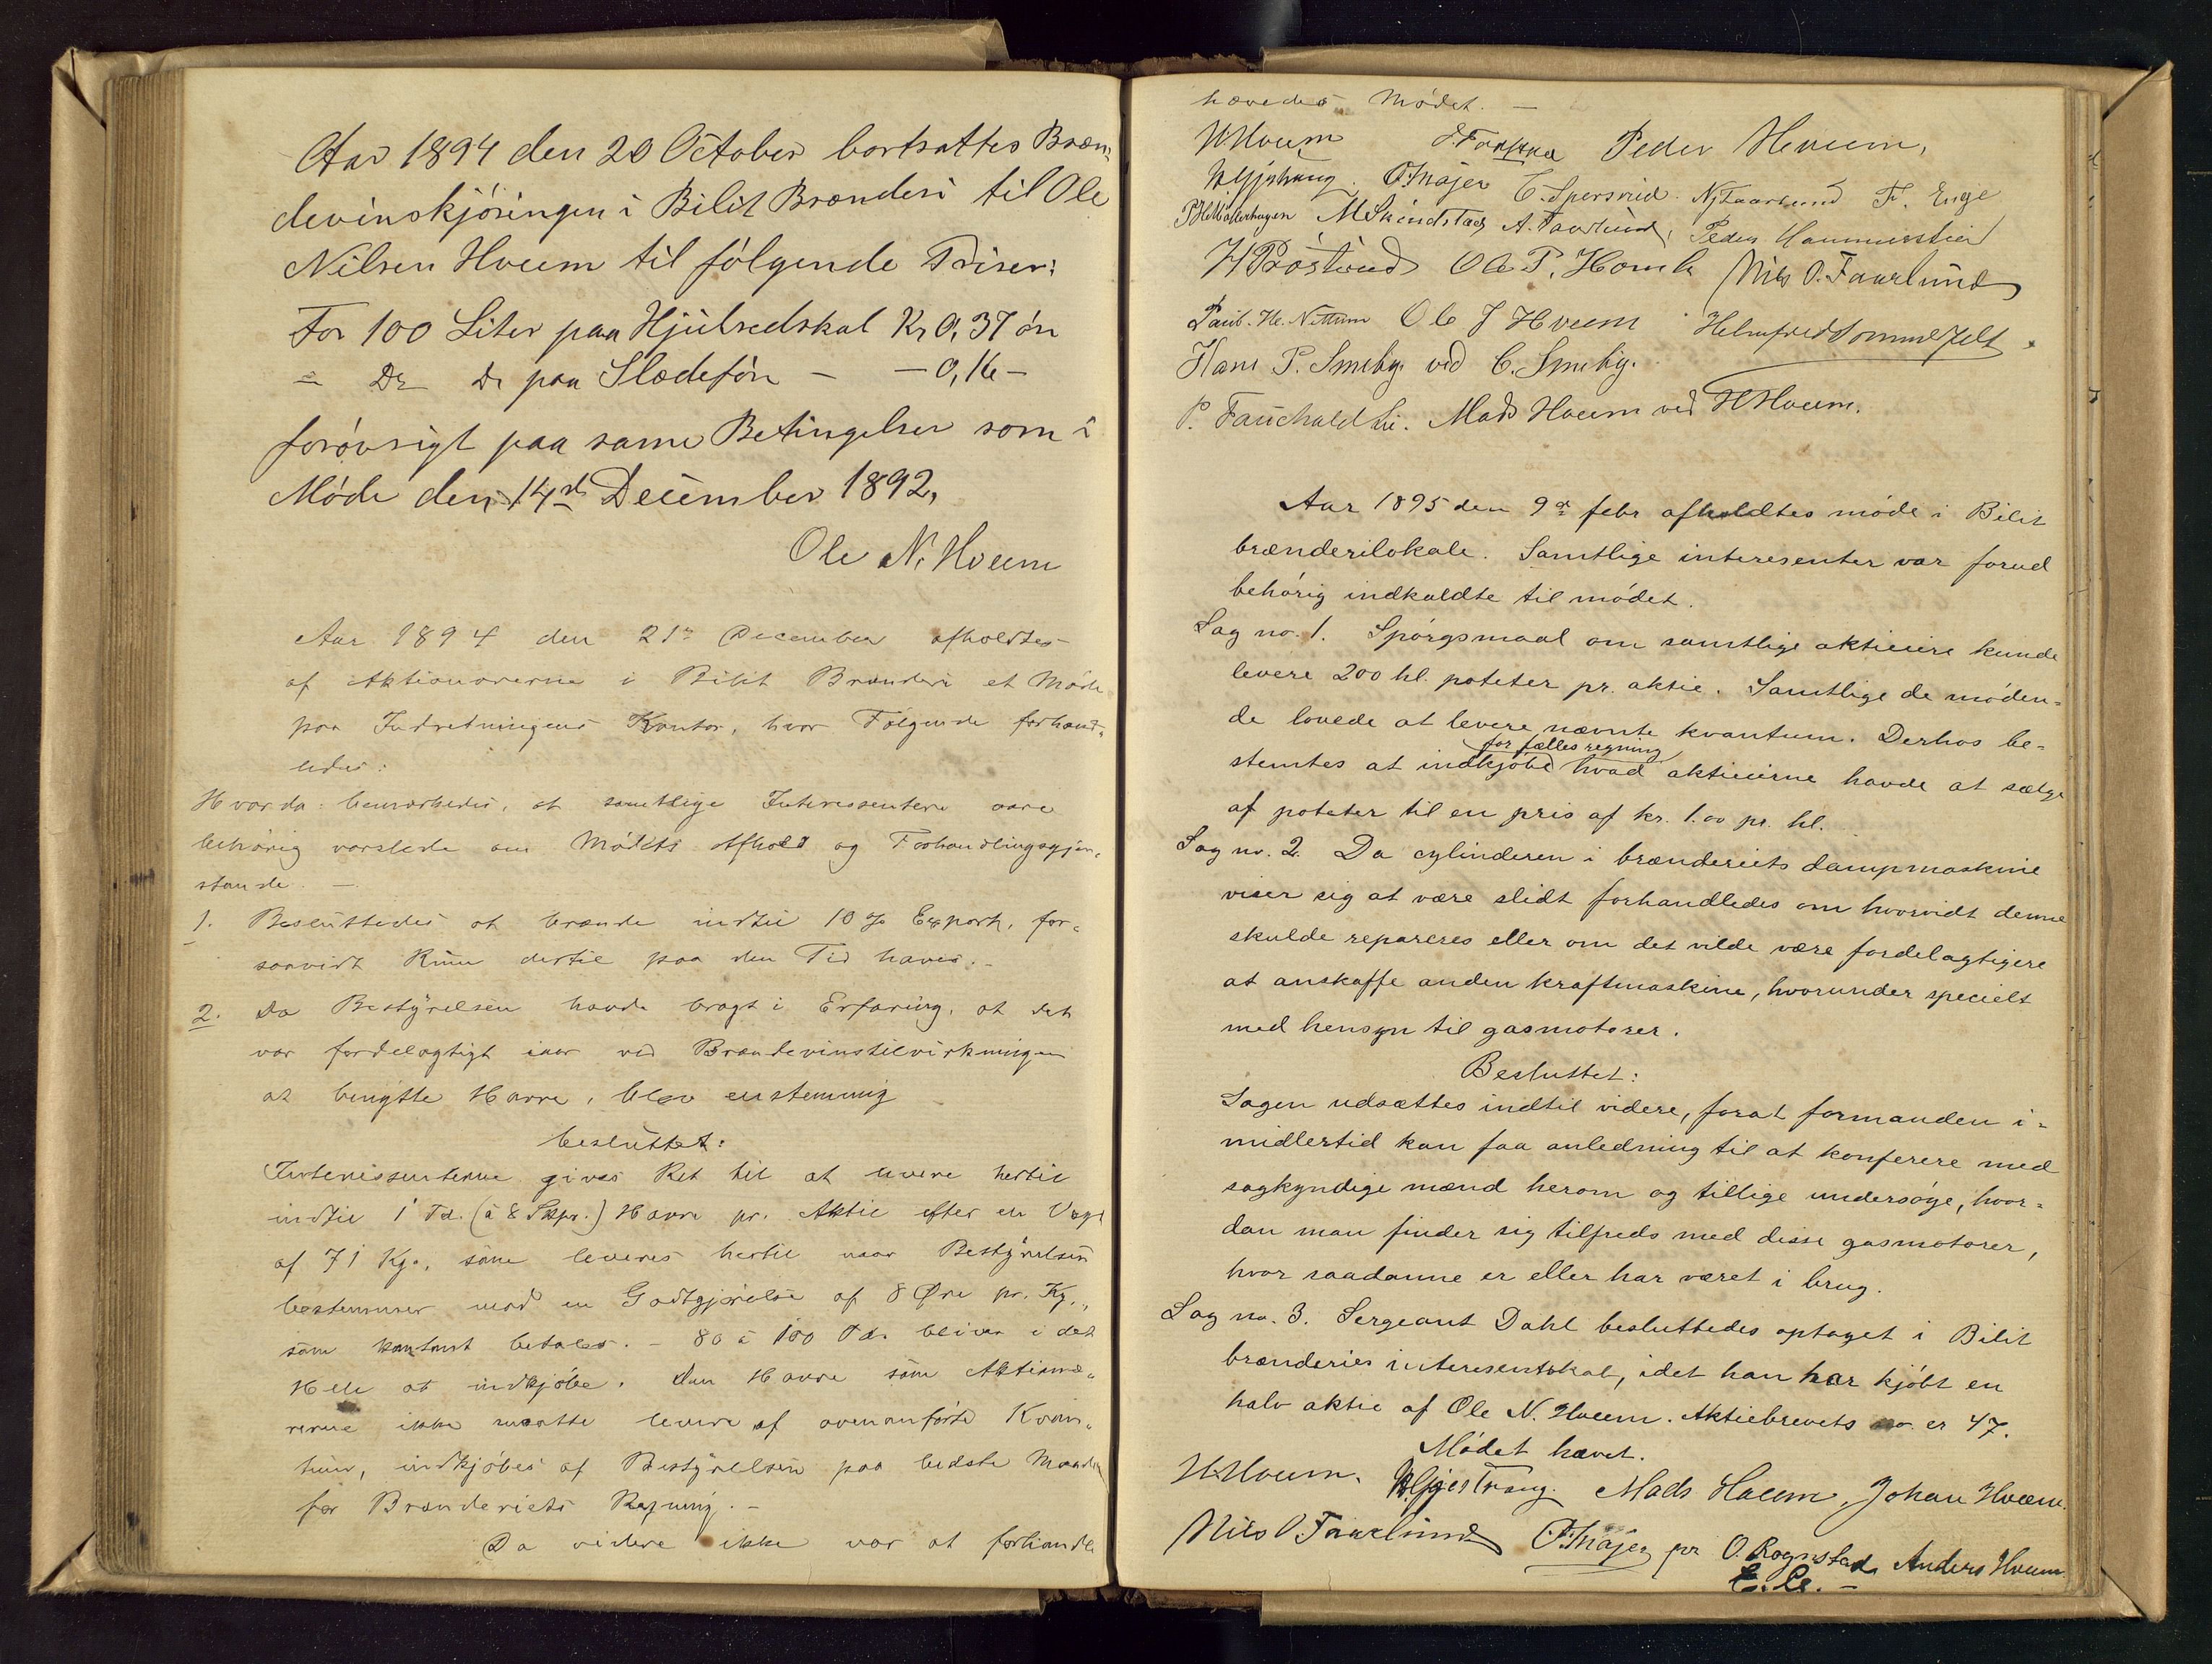 Aar 1894 den 20 October bortsattes Bræn,
devinskjöringen i Bilit Brænderi til Ole
Nilsen Hveem til følgende Priser:
For 100 Liter paa Hjulredskab Kr 0,37 ön
" Do Do paa Slædeföre - - 0,16 -
forövrigt paa samme Betingelser som i
Möde den 14de December 1892,
Ole N. Hveem
Aar 1894 den 21de December afholdtes
af Aktionærerne i Bilit Brænderi et Möde
paa Indretningens Kontor, hvor Følgende forhand„
ledes:
Hvorda bemærkedes, at samtlige Interessentere vare
behörig varslede om Mödets Afhold og Forhandlingsgjen„
stande. —
1. Besluttedes at brænde indtil 10 % Export, for„
saavidt Rum dertil paa den Tid haves. -
2. Da Bestyrelsen havde bragt i Erfaring, at det
var fordelagtigt iaar ved Brændevinstilvirkningen
at benytte Havre, blev enstemmig
besluttet:
Interessenterne gives Ret til at levere hertil
indtil 1 Td. (à 8 Skpr.) Havre pr. Aktie efter en Vægt
af 71 Kg., som leveres hertil naar Bestyrelsen
bestemmer mod en Godtgjörelse af 8 Øre pr. Kg.,
som kontant betales. - 80 à 100 Td. bliver i det
Hele at indkjöbe. Den Havre som Aktionæ„
rerne ikke maatte levere af ovenanförte Kvan„
tum, indkjöbes af Bestyrelsen paa bedste Maade
for Brænderiets Regning. -
Da videre ikke var at forhandle
hævedes Mödet. —
H Hveem Peder Hveem,
O. Majer N. Faarlund F. Enge
M Skindstad A. Faarlund, Peder Hammerstad
H Pröstrud Ole P. Homb Nils O. Faarlund
Paul. He. Nettum Ole J Hveem Helmfred Sommerfelt.
Hans P. Smeby. ved C. Smeby.
P. Fauchald Mads Hveem ved H Hveem.
Aar 1895 den 9de febr afholdtes möde i Bilit
brænderilokale. Samtlige interesenter var forud
behörig indkaldte til mödet.
Sag no. 1. Spörgsmaal om samtlige aktieeiere kunde
levere 200 hl. poteter pr. aktie. Samtlige de möden=
de lovede at levere nævnte kvantum. Derhos be=
for fælles regning
stemtes at indkjöbe hvad aktieeierne havde at sælge
af poteter til en pris af kr. 1.00 pr. hl.
Sag no. 2. Da cylinderen i brænderiets dampmaskine
viser sig at være slidt forhandledes om hvorvidt denne
skulde repareres eller om det vilde være fordelagtigere
at anskaffe anden kraftmaskine, hvorunder specielt
med hensyn til gasmotorer.
Besluttet:
Sagen udsættes indtil videre, forat formanden i=
midlertid kan faa anledning til at konferere med
sagkyndige mænd herom og tillige undersöge, hvor=
dan man finder sig tilfreds med disse gasmotorer,
hvor saadanne er eller har været i brug.
Sag no. 3. Sergeant Dahl besluttedes optaget i Bilit
brænderies interesentskab, idet han har kjöbt en
halv aktie af Ole N. Hveem. Aktiebrevets no. er 47.
Mödet hævet.
H Hveem. Gjestvang. Mads Hveem, Johan Hveem.
Nils O. Faarlund O. Majer for O. Rognstad Anders Hveem.